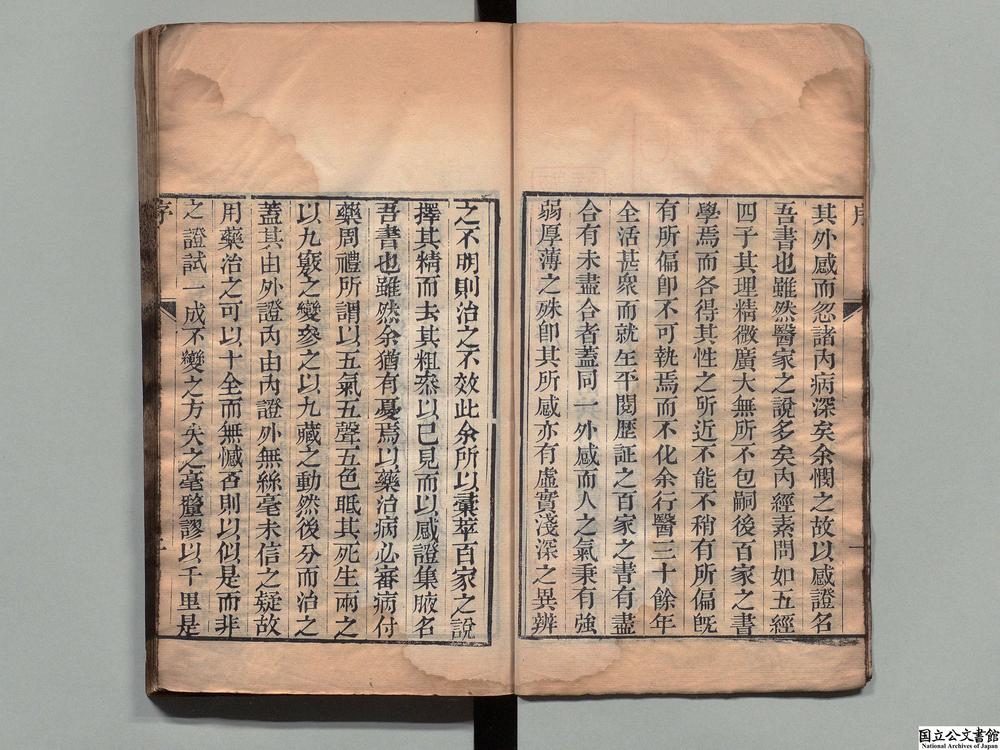 其外感而忽諸內病深矣余憫之故以感證名
吾書也雖然醫家之說多矣內經素問如五經
四子其理精微廣大無所不包嗣後百家之書
學焉而各得其性之所近不能不稍有所偏旣
有所偏卽不可執焉而不化余行醫三十餘年
全活甚衆而就生平閱歷証之百家之書有盡
合有未盡合者蓋同一外感而人之氣秉有強
弱厚薄之殊卽其所感亦有虛實淺深之異辨
之不明則治之不效此余所以彙萃百家之說
擇其精而去其粗叅以已見而以感證集腋名
吾書也雖然余猶有憂焉以藥治病必審病付
藥周禮所謂以五氣五聲五色眂其死生兩之
以九竅之變參之以九藏之動然後分而治之
蓋其由外證內由內證外無絲毫未信之疑故
用藥治之可以十全而無憾否則以似是而非
之證試一成不變之方失之毫釐謬以千里是
序
国立公文書館
National Archives of Japan